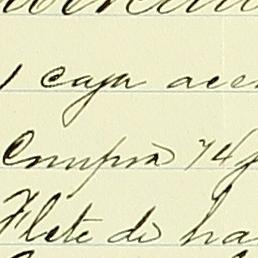 1 caja ace
Compra 74
Flete de ha